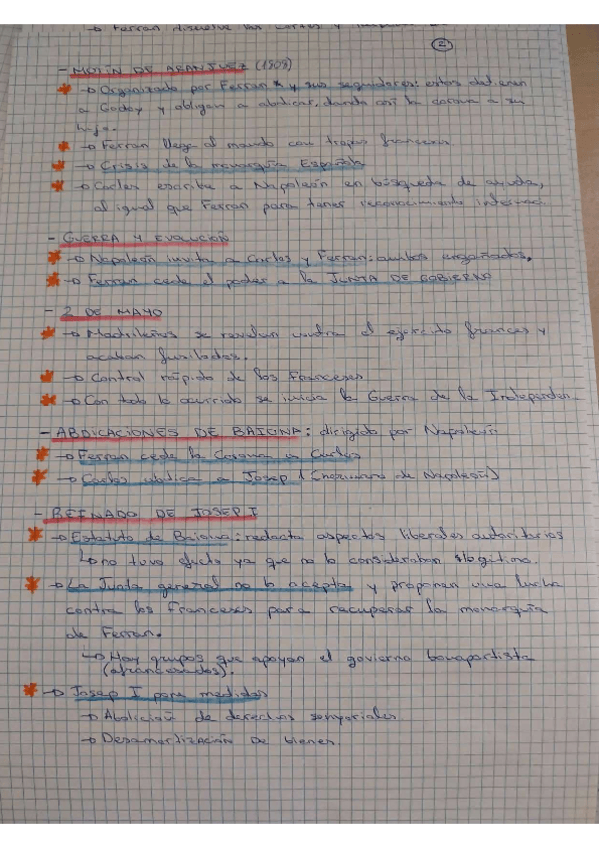 → Ferran disuelve las cortes y
2
- MOTÍN DE ARANJUEZ (1808)
→ Organizado por Ferran * y sus seguidores: estos detienen
a Godoy y obligan a abdicar, dando así la corona a su
hijo.
→ Ferran llega al mando con tropas francesas
→ Crisis de la monarquía Española
→ Carlos escribe a Napoleón en búsqueda de ayuda,
al igual que Ferran para tener reconocimiento internac.
- GUERRA Y EVOLUCIÓN
→ Napoleón invita a Carlos y Ferran: ambos engañados.
→ Ferran cede el poder a la JUNTA DE GOBIERNO
- 2 DE MAYO
→ Madrileños se revelan contra el ejército frances y
acaban fusilados.
→ Control rápido de los Franceses
→ Con todo lo ocurrido se inicia la Guerra de la Independen
- ABDICACIONES DE BAIONA: dirigido por Napoleón
→ Ferran cede la Corona a Carlos
→ Carlos abdica a Josep I (hermano de Napoleón)
- REINADO DE JOSEP I
→ Estatuto de Baiona: redacta aspectos liberales autoritarios
↳ no tuvo efecto ya que no lo consideraban legítimo.
→ La Junta general no lo acepta y proponen una lucha
contra los franceses para recuperar la monarquía
de Ferran.
↳ Hay grupos que apoyan el govierno bonapartista
(afrancesados).
→ Josep I pone medidas
→ Abolición de derechos senyoriales
→ Desamortización de bienes.